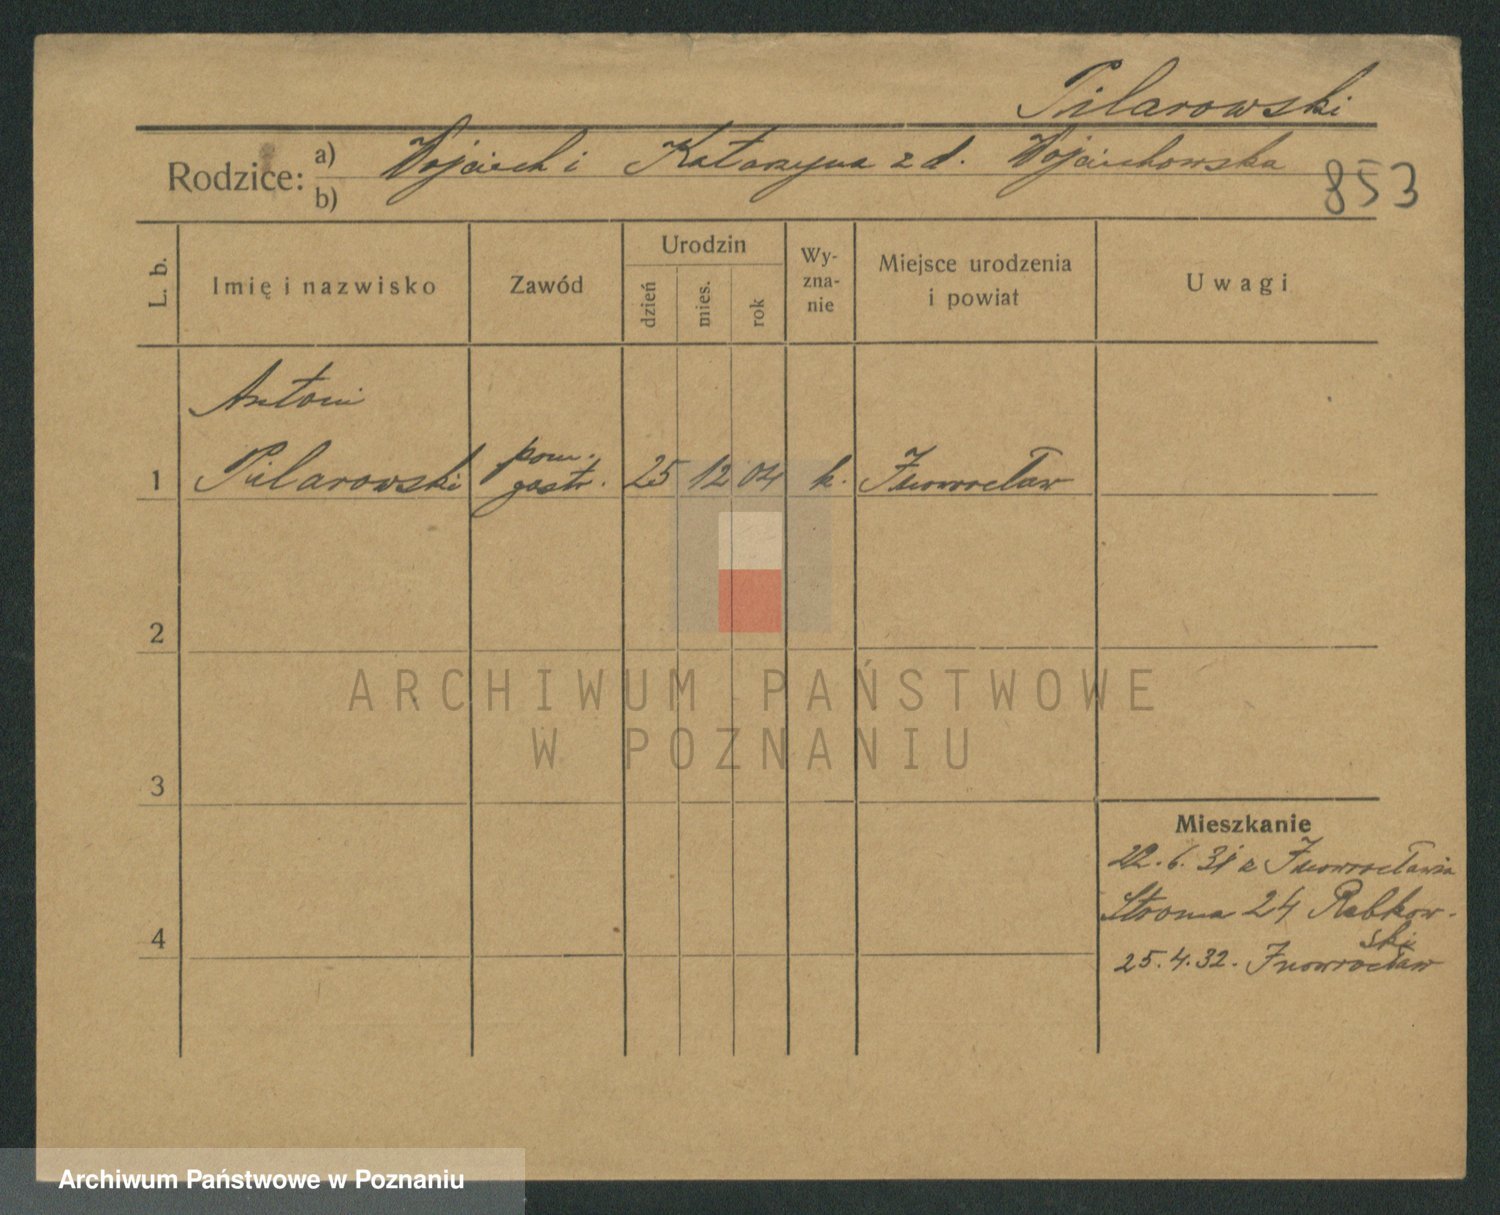 Pilarowski
Rodzice: a) Wojciech i Katarzyna z d. Wojciechowska
b)
853
L. b.
Imię i nazwisko
Zawód
Urodzin
dzień
mies.
rok
Wy-
zna-
nie
Miejsce urodzenia
i powiat
Uwagi
Antoni
1 Pilarowski pom. gastr. 25 12 04 k. Inowrocław
2
3
4
Mieszkanie
22.6.31 z Inowrocławia
Stroma 24 Rabkow-
ski
25.4.32. Inowrocław
ARCHIWUM PAŃSTWOWE
W POZNANIU
Archiwum Państwowe w Poznaniu